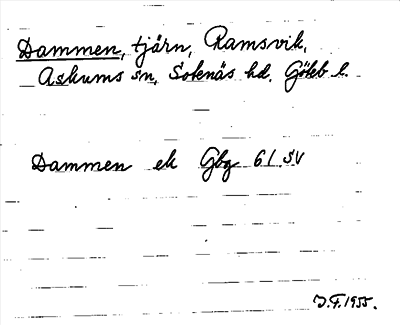 Dammen, tjärn, Ramsvik,
Askums sn, Sotenäs hd. Göteb l.
Dammen ek Gbg 61.SV
J.F. 1955.